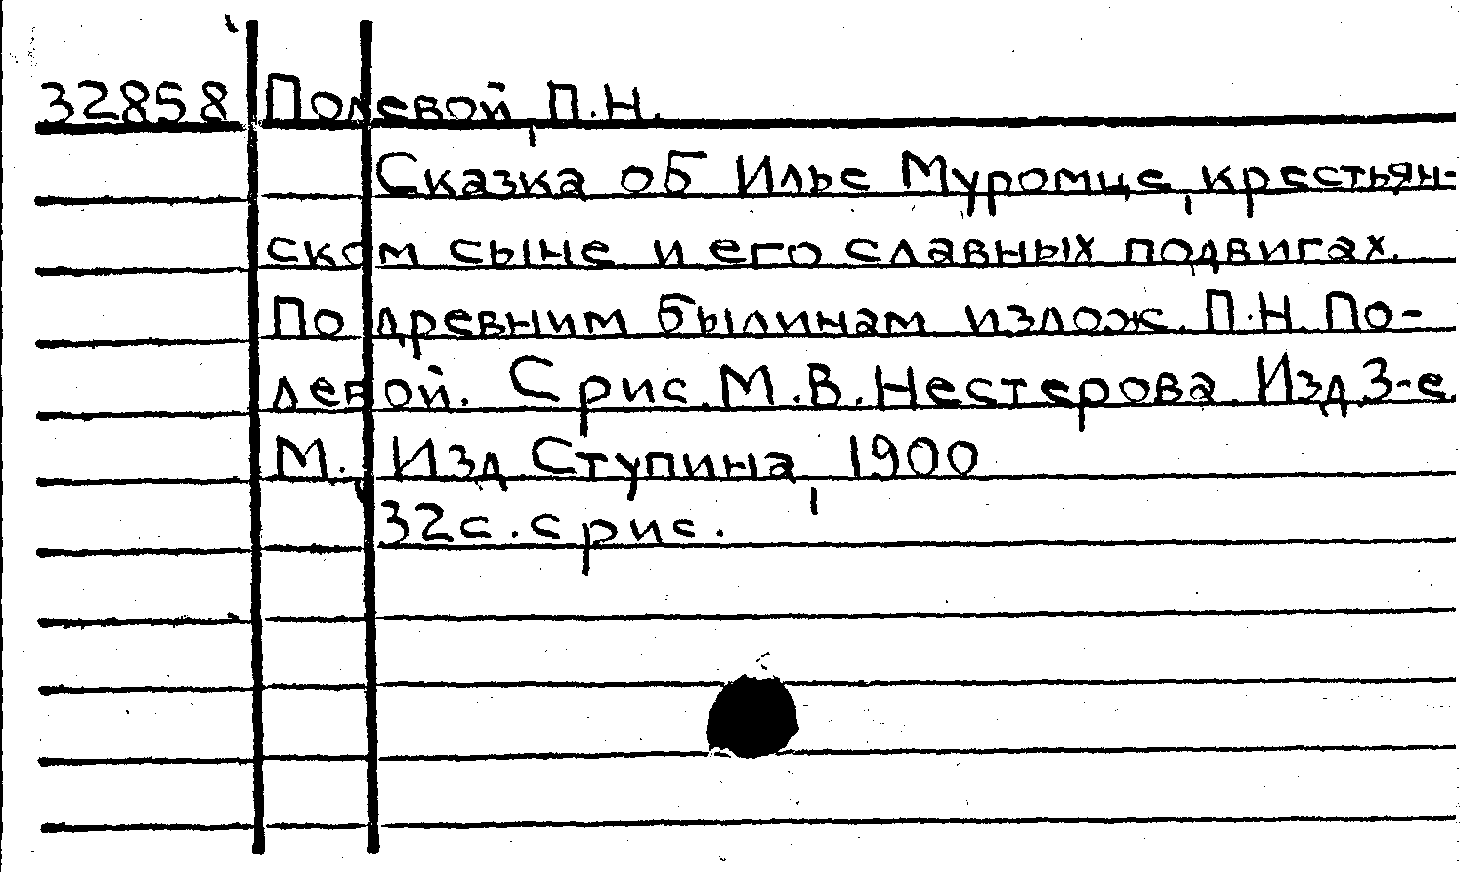 32858 Полевой, П.Н.
Сказка об Илье Муромце, крестьян-
ском сыне и его славных подвигах.
По древним былинам излож. П.Н. По-
левой. С рис. М.В. Нестерова. Изд. 3-е.
М., Изд. Ступина, 1900
32 с. с рис.